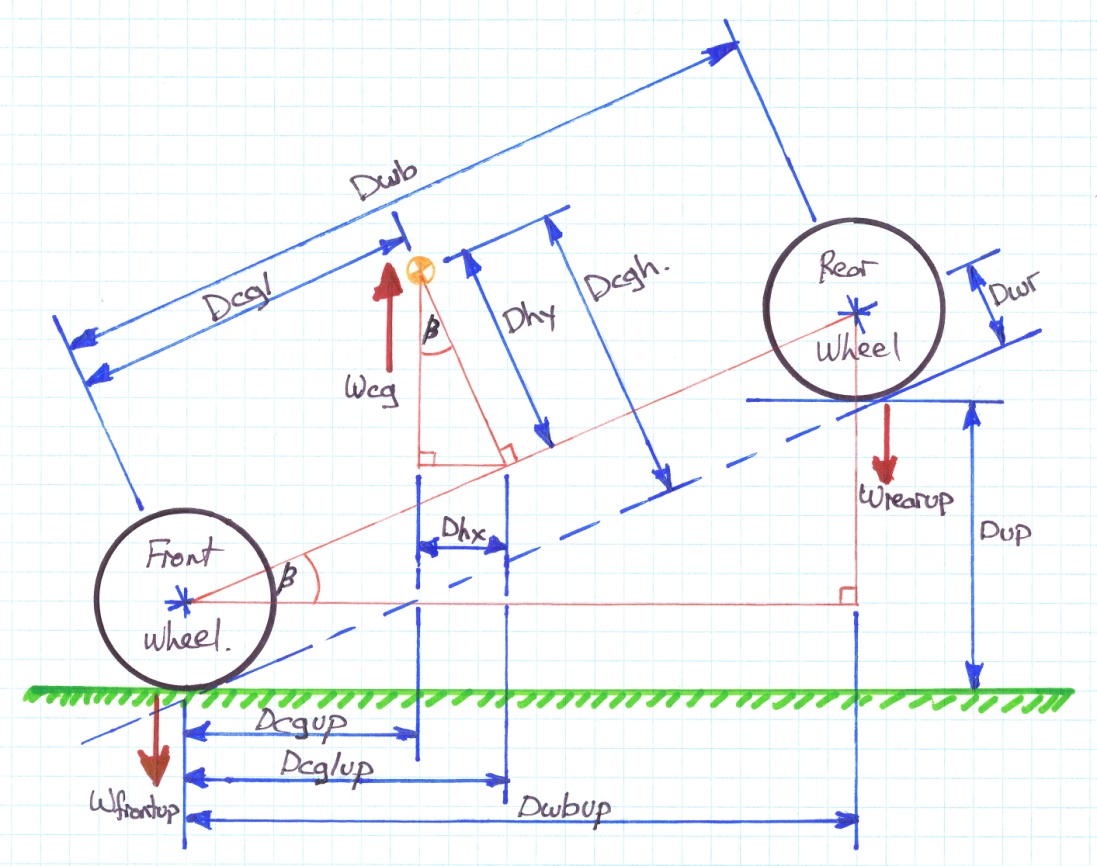 Dwb
Dcgl
β
Dhy
Dcgh.
Rear
Wheel
Dwr
Wcg
Wrearup
Dup
Dhx
Front
Wheel.
β
Dcgup
Dcglup
Wfrontup
Dwbup